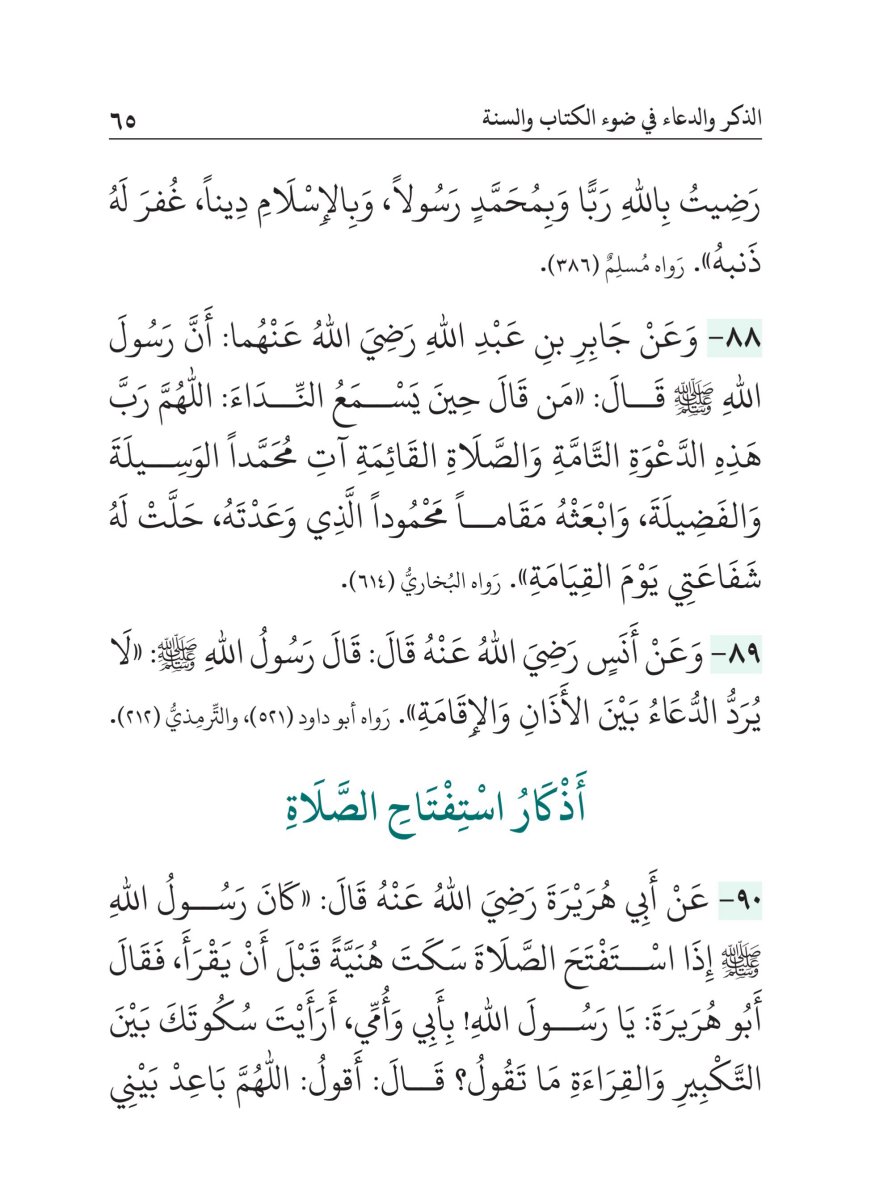 الذكر والدعاء في ضوء الكتاب والسنة ٦٥
رَضِيتُ بِاللهِ رَبًّا وَبِمُحَمَّدٍ رَسُولاً، وَبِالإِسْلَامِ دِيناً، غُفرَ لَهُ
ذَنبهُ». رَواه مُسلِمٌ (٣٨٦).
٨٨- وَعَنْ جَابِرِ بنِ عَبْدِ اللهِ رَضِيَ اللهُ عَنْهُما: أَنَّ رَسُولَ
اللهِ ﷺ قَـالَ: «مَن قَالَ حِينَ يَسْـمَعُ النِّـدَاءَ: اللَّهُمَّ رَبَّ
هَذِهِ الدَّعْوَةِ التَّامَّةِ وَالصَّلَاةِ القَائِمَةِ آتِ مُحَمَّداً الوَسِـيلَةَ
وَالفَضِيلَةَ، وَابْعَثْهُ مَقَامـاً مَحْمُوداً الَّذِي وَعَدْتَهُ، حَلَّتْ لَهُ
شَفَاعَتِي يَوْمَ القِيَامَةِ». رَواه البُخاريُّ (٦١٤).
٨٩- وَعَنْ أَنَسٍ رَضِيَ اللهُ عَنْهُ قَالَ: قَالَ رَسُولُ اللهِ ﷺ: «لَا
يُرَدُّ الدُّعَاءُ بَيْنَ الأَذَانِ وَالإِقَامَةِ». رَواه أبو داود (٥٢١)، والتِّرمِذيُّ (٢١٢).
أَذْكَارُ اسْتِفْتَاحِ الصَّلَاةِ
٩٠- عَنْ أَبِي هُرَيْرَةَ رَضِيَ اللهُ عَنْهُ قَالَ: «كَانَ رَسُـولُ اللهِ
ﷺ إِذَا اسْـتَفْتَحَ الصَّلَاةَ سَكَتَ هُنَيَّةً قَبْلَ أَنْ يَقْرَأَ، فَقَالَ
أَبُو هُرَيرَةَ: يَا رَسُـولَ اللهِ! بِأَبِي وَأُمِّي، أَرَأَيْتَ سُكُوتَكَ بَيْنَ
التَّكْبِيرِ وَالقِرَاءَةِ مَا تَقُولُ؟ قَـالَ: أَقولُ: اللَّهُمَّ بَاعِدْ بَيْنِي